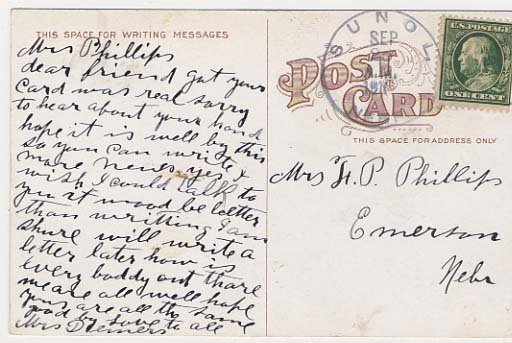 THIS SPACE FOR WRITING MESSAGES
Mrs Phillips
dear friend got your
card was real sorry
to hear about your hand
hope it is well by this
so you can write &
more news yes to
wish I could talk
you it wood be better
than writting I am
shure will write a
letter later how is
every baddy out thare
we are all well hope
you are all the same
good by love to all
Mrs
SUNOL
SEP
POST
CARD
U.S. POSTAGE
ONE CENT
THIS SPACE FOR ADDRESS ONLY
Mrs F. P. Phillips
Emerson
Nebr